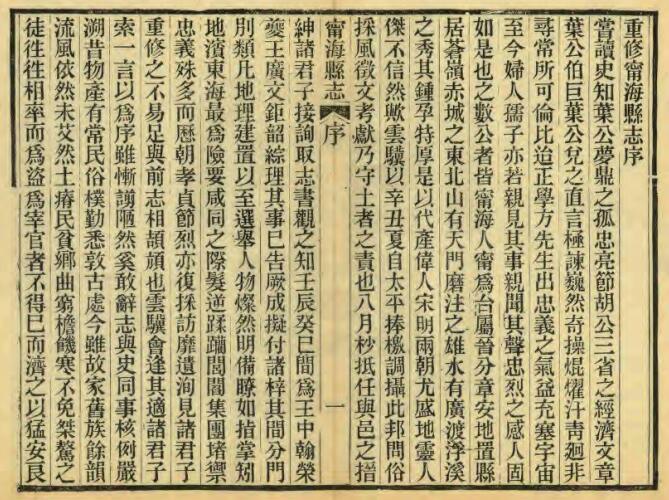 重修甯海縣志序
嘗讀史知葉公夢鼎之孤忠亮節胡公三省之經濟文章
葉公伯巨葉公兌之直言極諫巍然奇操焜燿汁靑迥非
尋常所可倫比迨正學方先生出忠義之氣益充塞宇宙
至今婦人孺子亦若親見其事親聞其聲忠烈之感人固
如是也之數公者皆甯海人甯爲台屬晉分章安地置縣
居蒼嶺赤城之東北山有天門磨注之雄水有廣渡浮溪
之秀其鍾孕特厚是以代產偉人宋明兩朝尤盛地靈人
傑不信然歟雲驥以辛丑夏自太平捧檄調攝此邦問俗
採風徵文考獻乃守土者之責也八月杪抵任與邑之搢
甯海縣志
序
一
紳諸君子接詢取志書觀之知壬辰癸巳間爲王中翰榮
夔王廣文鉅韶綜理其事已告厥成擬付諸梓其間分門
別類凡地理建置以至選舉人物燦然明備瞭如指掌矧
地濱東海最爲險要咸同之際髮逆蹂躪閭閻集團堵禦
忠義殊多而歷朝孝貞節烈亦復採訪靡遺洵見諸君子
重修之不易足與前志相頡頏也雲驥會逢其適諸君子
索一言以爲序雖慚謭陋然奚敢辭志與史同事核例嚴
溯昔物產有常民俗樸勤悉敦古處今雖故家舊族餘韻
流風依然未艾然土瘠民貧鄉曲窮檐饑寒不免桀驁之
徒往往相率而爲盜爲宰官者不得已而濟之以猛安良